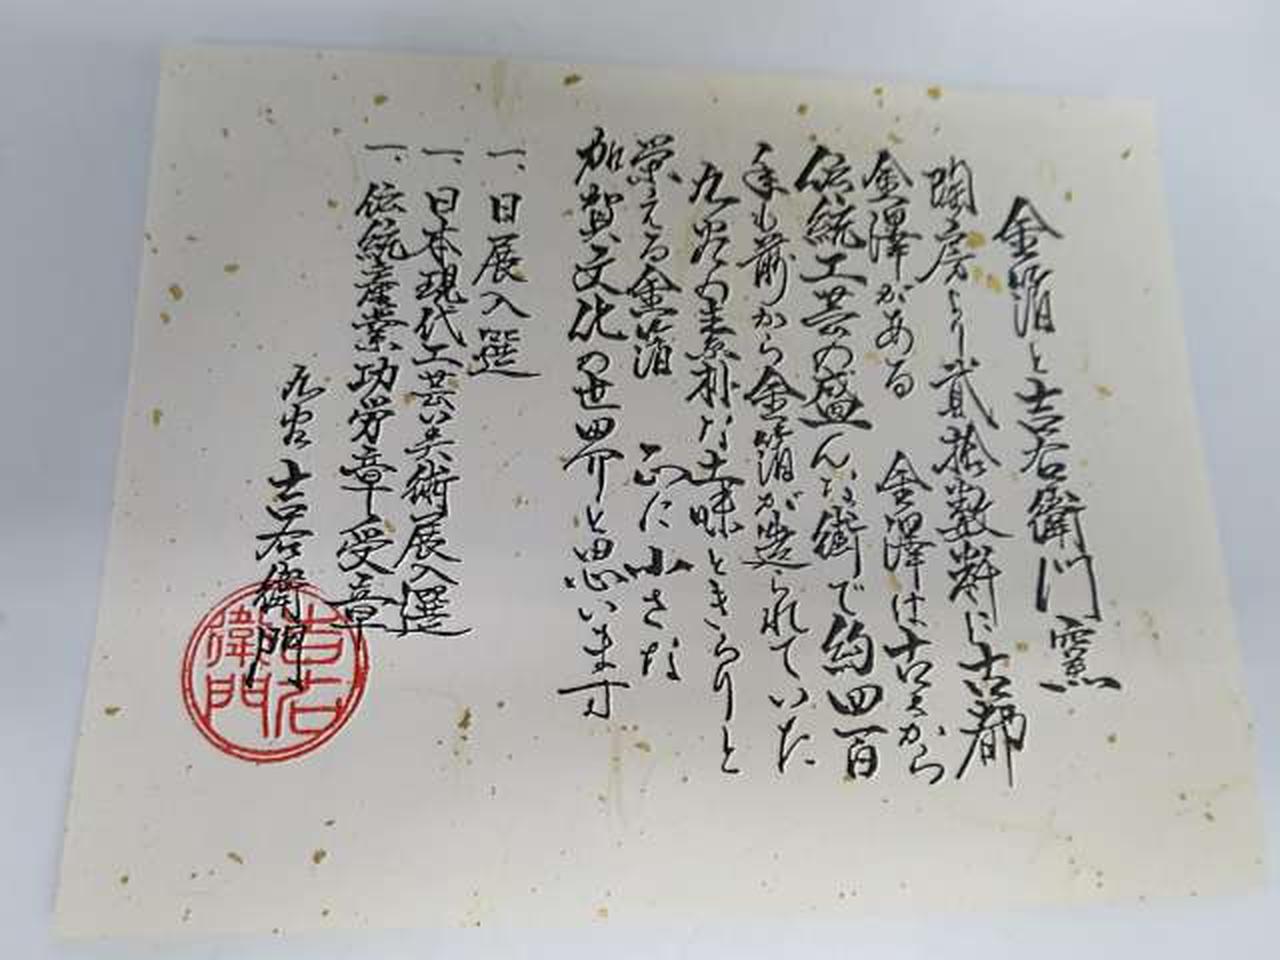 金箔と吉右衛門窯
陶房より貳拾数粁に古都
金澤がある 金澤は古くから
伝統工芸の盛んな街で約四百
年も前から金箔が造られていた
九谷の素朴な土味ときらりと
栄える金箔 正に小さな
加賀文化の世界と思います
一、日展入選
一、日本現代工芸美術展入選
一、伝統産業功労章受章
九谷 吉右衛門
吉右
衛門